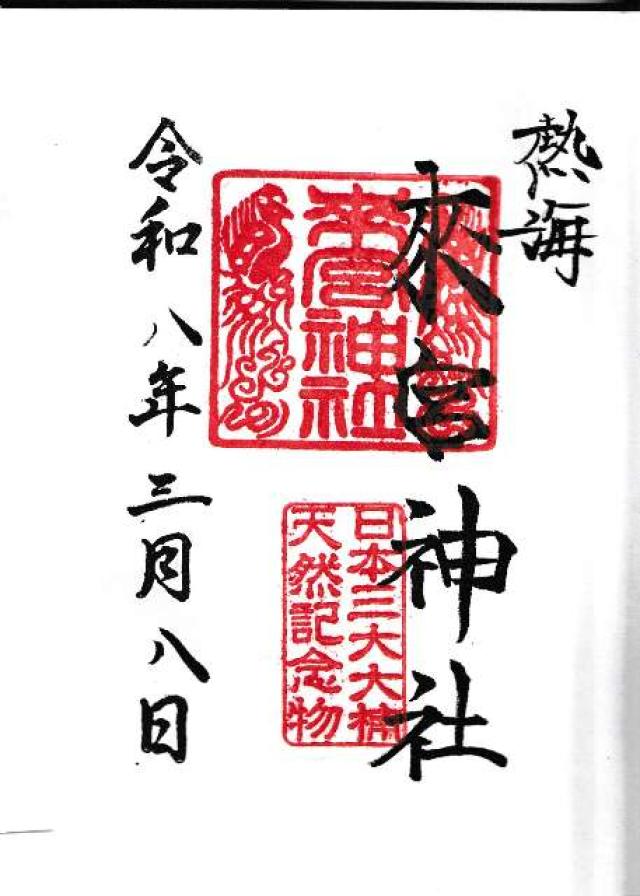 熱海
來宮神社
來宮神社
日本三大大楠
天然記念物
令和八年三月八日